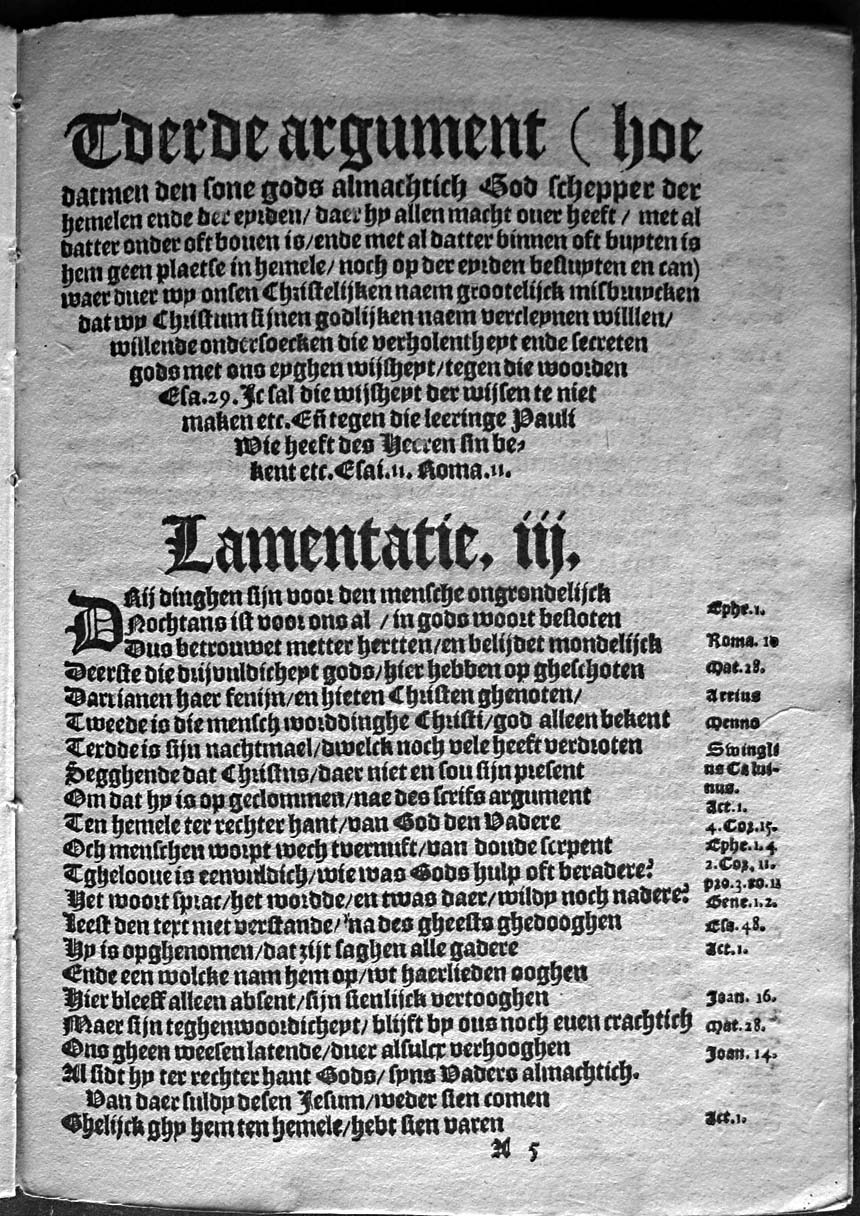 Tderde argument ( hoe
datmen den sone gods almachtich God schepper der
hemelen ende der eyrden/ daer hy allen macht ouer heeft / met al
datter onder oft bouen is/ende met al datter binnen oft buyten is
hem geen plaetse in hemele/ noch op der eyrden besluyten en can)
waer duer wy onsen Christelijken naem grootelijck misbruycken
dat wy Christum sijnen godlijken naem vercleynen willlen/
willende ondersoecken die verholentheyt ende secreten
gods met ons eyghen wijsheyt/tegen die woorden
Esa.29. Ic sal die wijsheyt der wijsen te niet
maken etc. Eñ tegen die leeringe Pauli
Wie heeft des Heeren sin be⸗
kent etc. Esai.11. Roma.11.
Lamentatie. iij.
DRij dinghen sijn voor den mensche ongrondelijck
Nochtans ist voor ons al / in gods woort besloten Ephe.1.
Dus betrouwet metter hertten/en belijdet mondelijck Roma. 10
Deerste die drijvuldicheyt gods/hier hebben op gheschoten Mat.28.
Darrianen haer fenijn/en hieten Christen ghenoten/ Arrius
Tweede is die mensch worddinghe Christi/god alleen bekent Menno
Terdde is sijn nachtmael/dwelck noch vele heeft verdroten Swingli
Segghende dat Christus/daer niet en sou sijn present us Calui-
Om dat hy is op geclommen/nae des scrifs argument nus.
Ten hemele ter rechter hant/van God den Vadere Act.1.
Och menschen worpt wech tvernuft/van doude serpent 4.Cor.15. Ephe.1.4
Tghelooue is eenvuldich/wie was Gods hulp oft beradere? 2.Cor.11.
Het woort sprac/het wordde/en twas daer/wildy noch nadere? pro.3.30.11 Gene.1.2.
Leest den text met verstande/ na des gheests ghedooghen Esa.48.
Hy is opghenomen/dat zijt saghen alle gadere Act.1.
Ende een wolcke nam hem op/wt haerlieden ooghen
Hier bleeff alleen absent/sijn sienlijck vertooghen Joan. 16.
Maer sijn teghenwoordicheyt/ blijft by ons noch euen crachtich Mat.28.
Ons gheen weesen latende/duer alsulcx verhooghen Joan. 14.
Al sidt hy ter rechter hant Gods/ syns Vaders almachtich.
Van daer suldy desen Jesum/weder sien comen
Ghelijck ghy hem ten hemele/hebt sien varen Act.1.
A 5